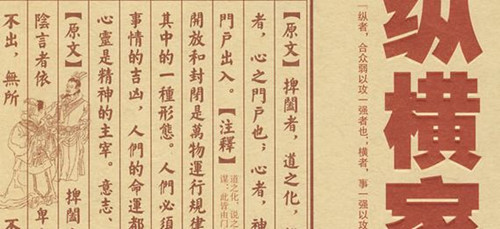 纵横家
“纵者，合众弱以攻一强者也；横者，事一强以攻
【原文】捭闔者，道之化，
者，心之門戶也；心者，神
門戶出入。【注釋】
道之化，说之
谋，此皆由门
開放和封閉是萬物運行規律
其中的一種形態。人們必須
事情的吉凶，人們的命運都
心靈是精神的主宰。意志、
【原文】捭闔
陰言者依 卑
不出，無所 不